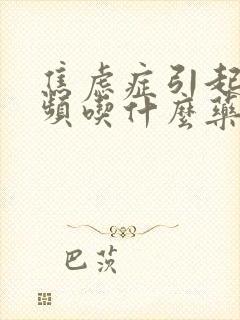 焦虑症引起
頻喫什麼藥
巴茨